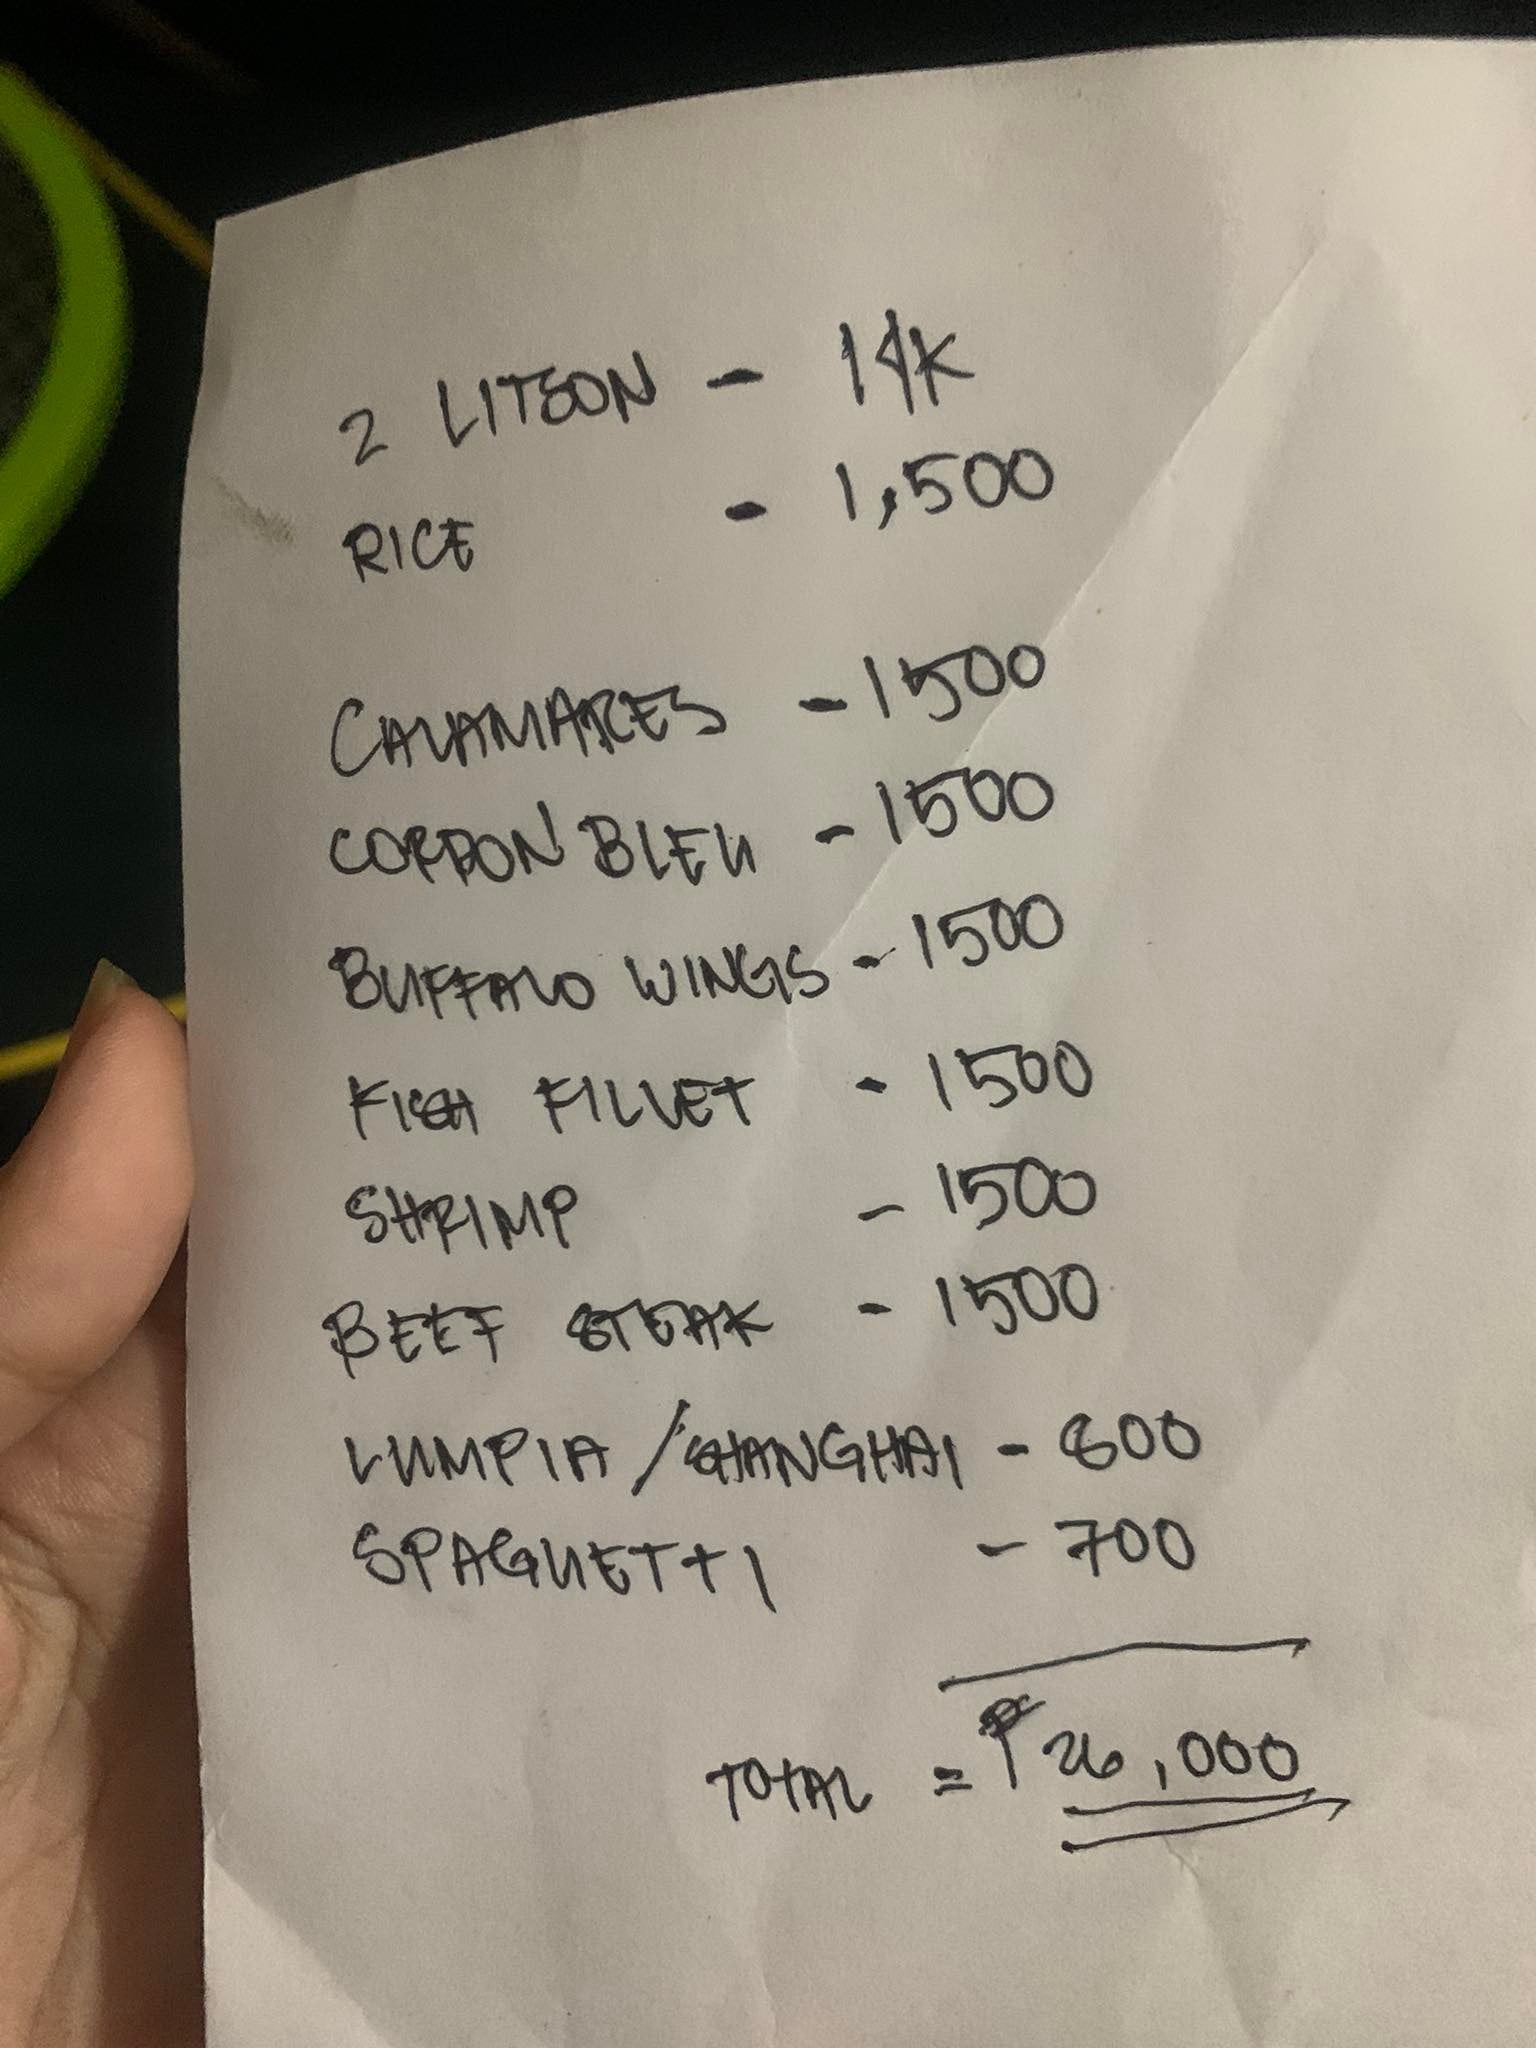 2 LITSON - 14K
RICE - 1,500
CALAMARES - 1500
CORDON BLEU - 1500
BUFFALO WINGS - 1500
FISH FILLET - 1500
SHRIMP - 1500
BEEF STEAK - 1500
LUMPIA / SHANGHAI - 800
SPAGUETTI - 700
TOTAL = ₱ 26,000